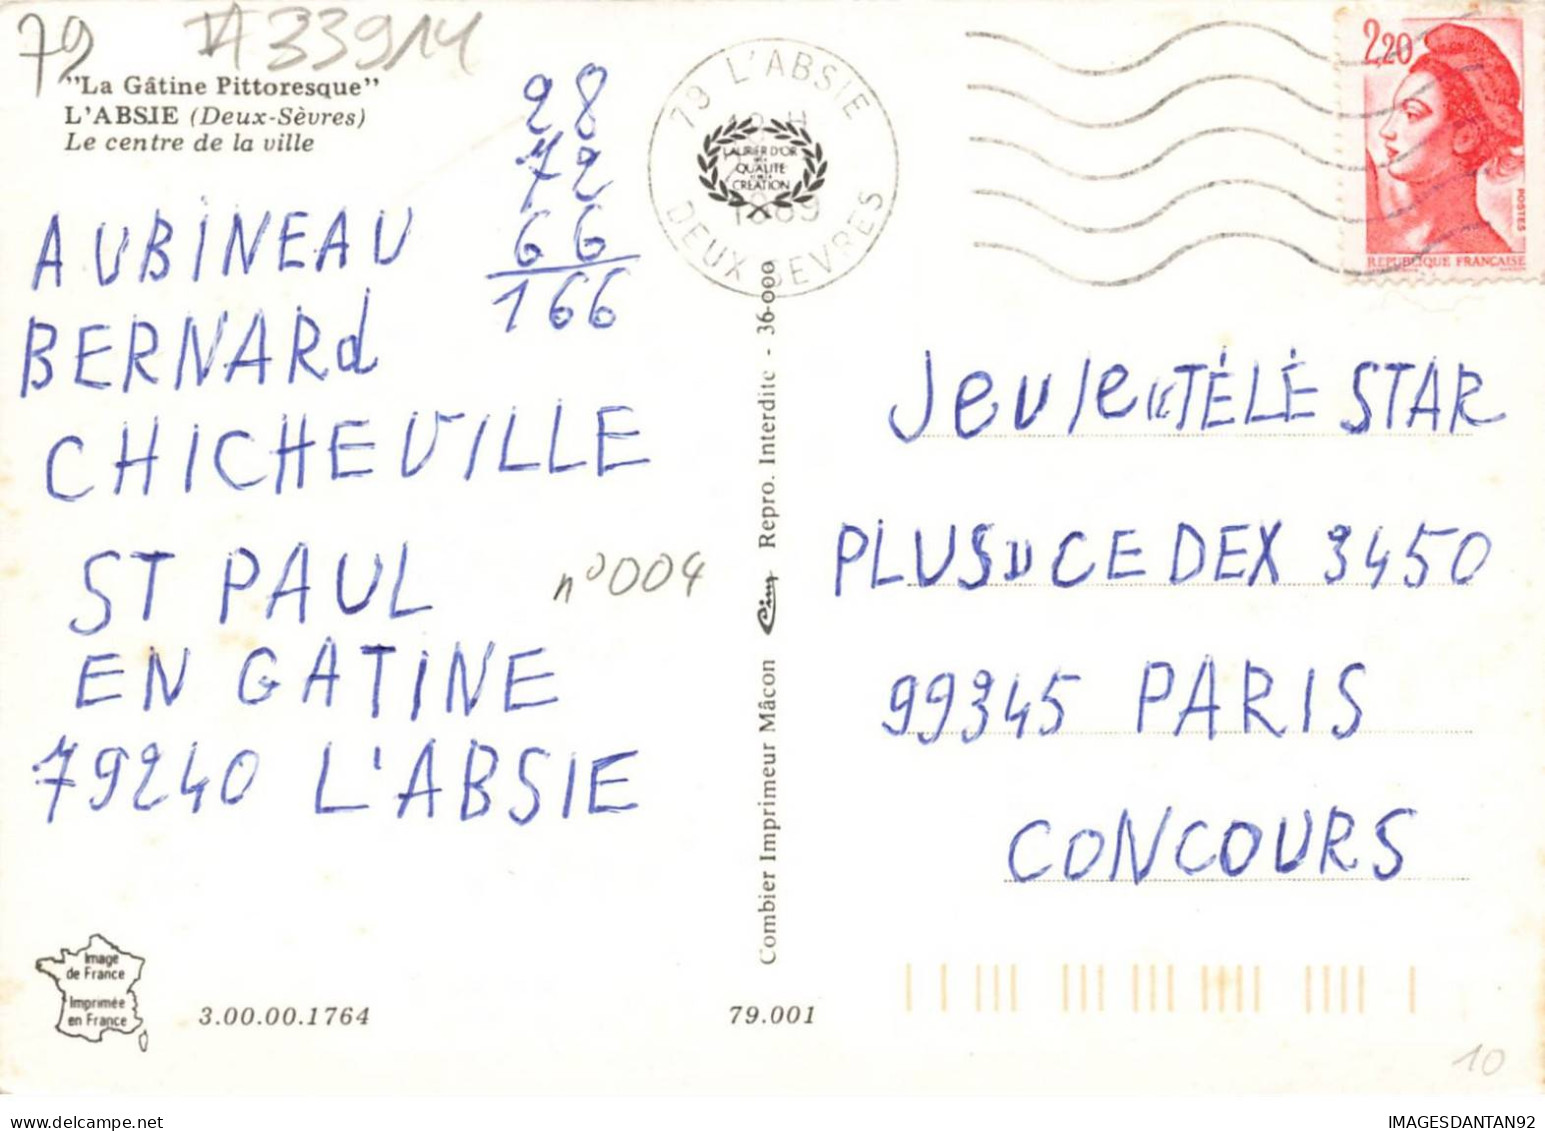 79
A33914
"La Gâtine Pittoresque"
L'ABSIE (Deux-Sèvres)
Le centre de la ville
28
72
66
166
79 L'ABSIE
LAURIER D'OR
QUALITE
CREATION
DEUX SEVRES
2,20
POSTES
REPUBLIQUE FRANÇAISE
AUBINEAU
BERNARd
CHICHEVILLE
ST PAUL
EN GATINE
79240 L'ABSIE
n°004
Combier Imprimeur Mâcon Cim Repro. Interdite - 36-000
Jeu le "TÉLÉ STAR
PLUS" CEDEX 3450
99345 PARIS
CONCOURS
Image
de France
Imprimée
en France
3.00.00.1764
79.001
10
IMAGESDANTAN92